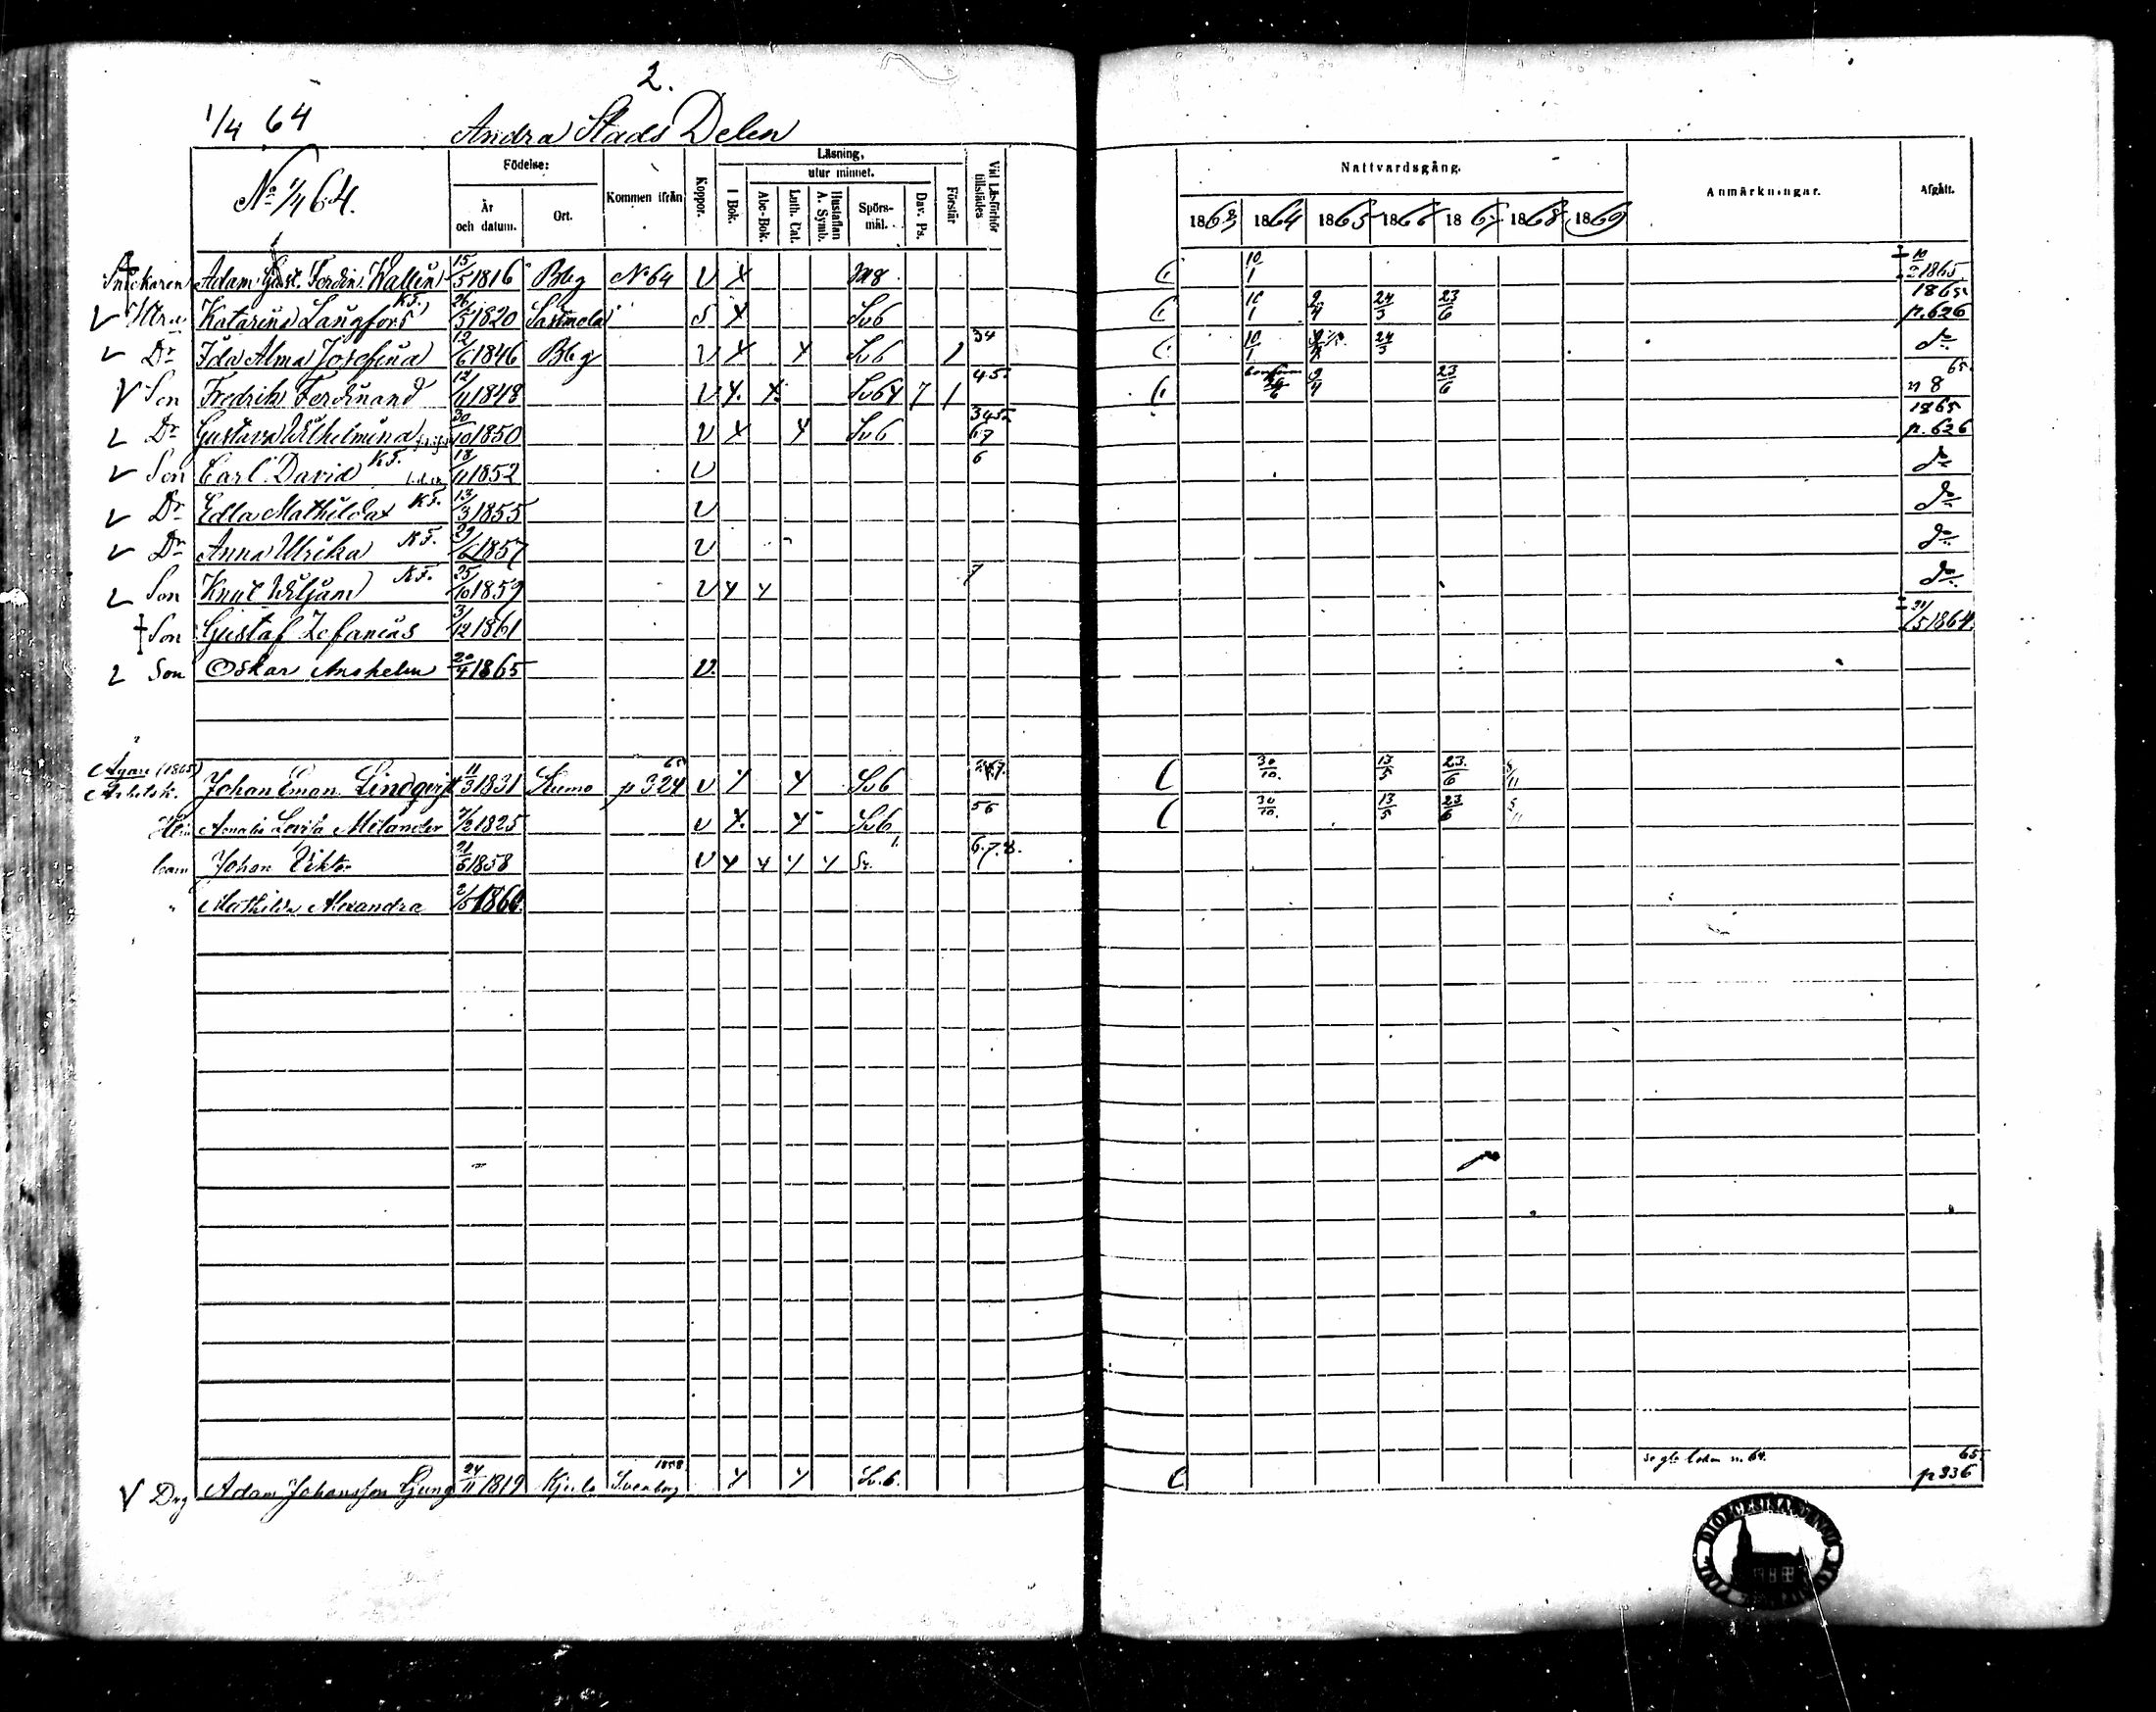 2.
1/4 64 Andra Stads Delen
No 1/4 64. Födelse: År och datum. Ort. Kommen ifrån Koppor. Läsning, I Bok. utur minnet. Abc-Bok. Luth. Cat. Hustaflan A. Symb. Spörsmål. Dav. Ps. Förstår Vid Läsförhör tillstädes Nattvardsgång. 1863 1864 1865 1866 1867 1868 1869 Anmärkningar. Afgått.
Snickaren Adam Gust. Ferdin. Wallin 15/5 1816 Bbg No 64 V 10/1 † 10/2 1865
Katarina Långfors K.F. 26/5 1820 Sastmola S Sv 6 10/1 9/4 24/5 23/6 1865 p. 626
Dr Ida Alma Josefina 12/6 1846 Bbg V Sv 6 34 10/1 24/5 do
V Son Fredrik Ferdinand 12/11 1848 V 7 1 45 9/4 23/6 n 8 65
Dr Gustava Wilhelmina 30/10 1850 V Sv 6 345 67 1865 p. 626
Son Carl David K.F. 18/11 1852 V 6 do
Dr Edla Mathilda K.F. 13/3 1855 V do
Dr Anna Ulrika K.F. 1857 V do
Son Knut Wiljam K.F. 25/10 1859 V 7 do
† Son Gustaf Zefanias 3/12 1861 † 5 1864
Son Oskar Anshelm 20/4 1865 V.
Ägare (1865)
Arbetsk. Johan Eman. Lindqvist 11/3 1831 Kumo p 324 65 V Sv 6 30/10 13/5 23/6
Lovisa Milander 7/2 1825 V Sv 6 56 30/10 13/5 23/6
barn Johan Viktor 21/6 1858 V Sv. 6.7.8.
Mathilda Alexandra
V Drg Adam Johansson Ljung 24/11 1819 Kjulo 1858 Sv. 6. 65 p 336